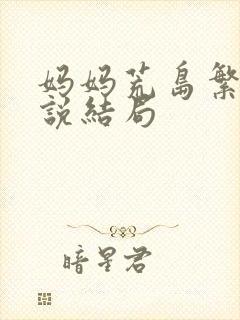 妈妈荒岛繁
说结局
暗星君